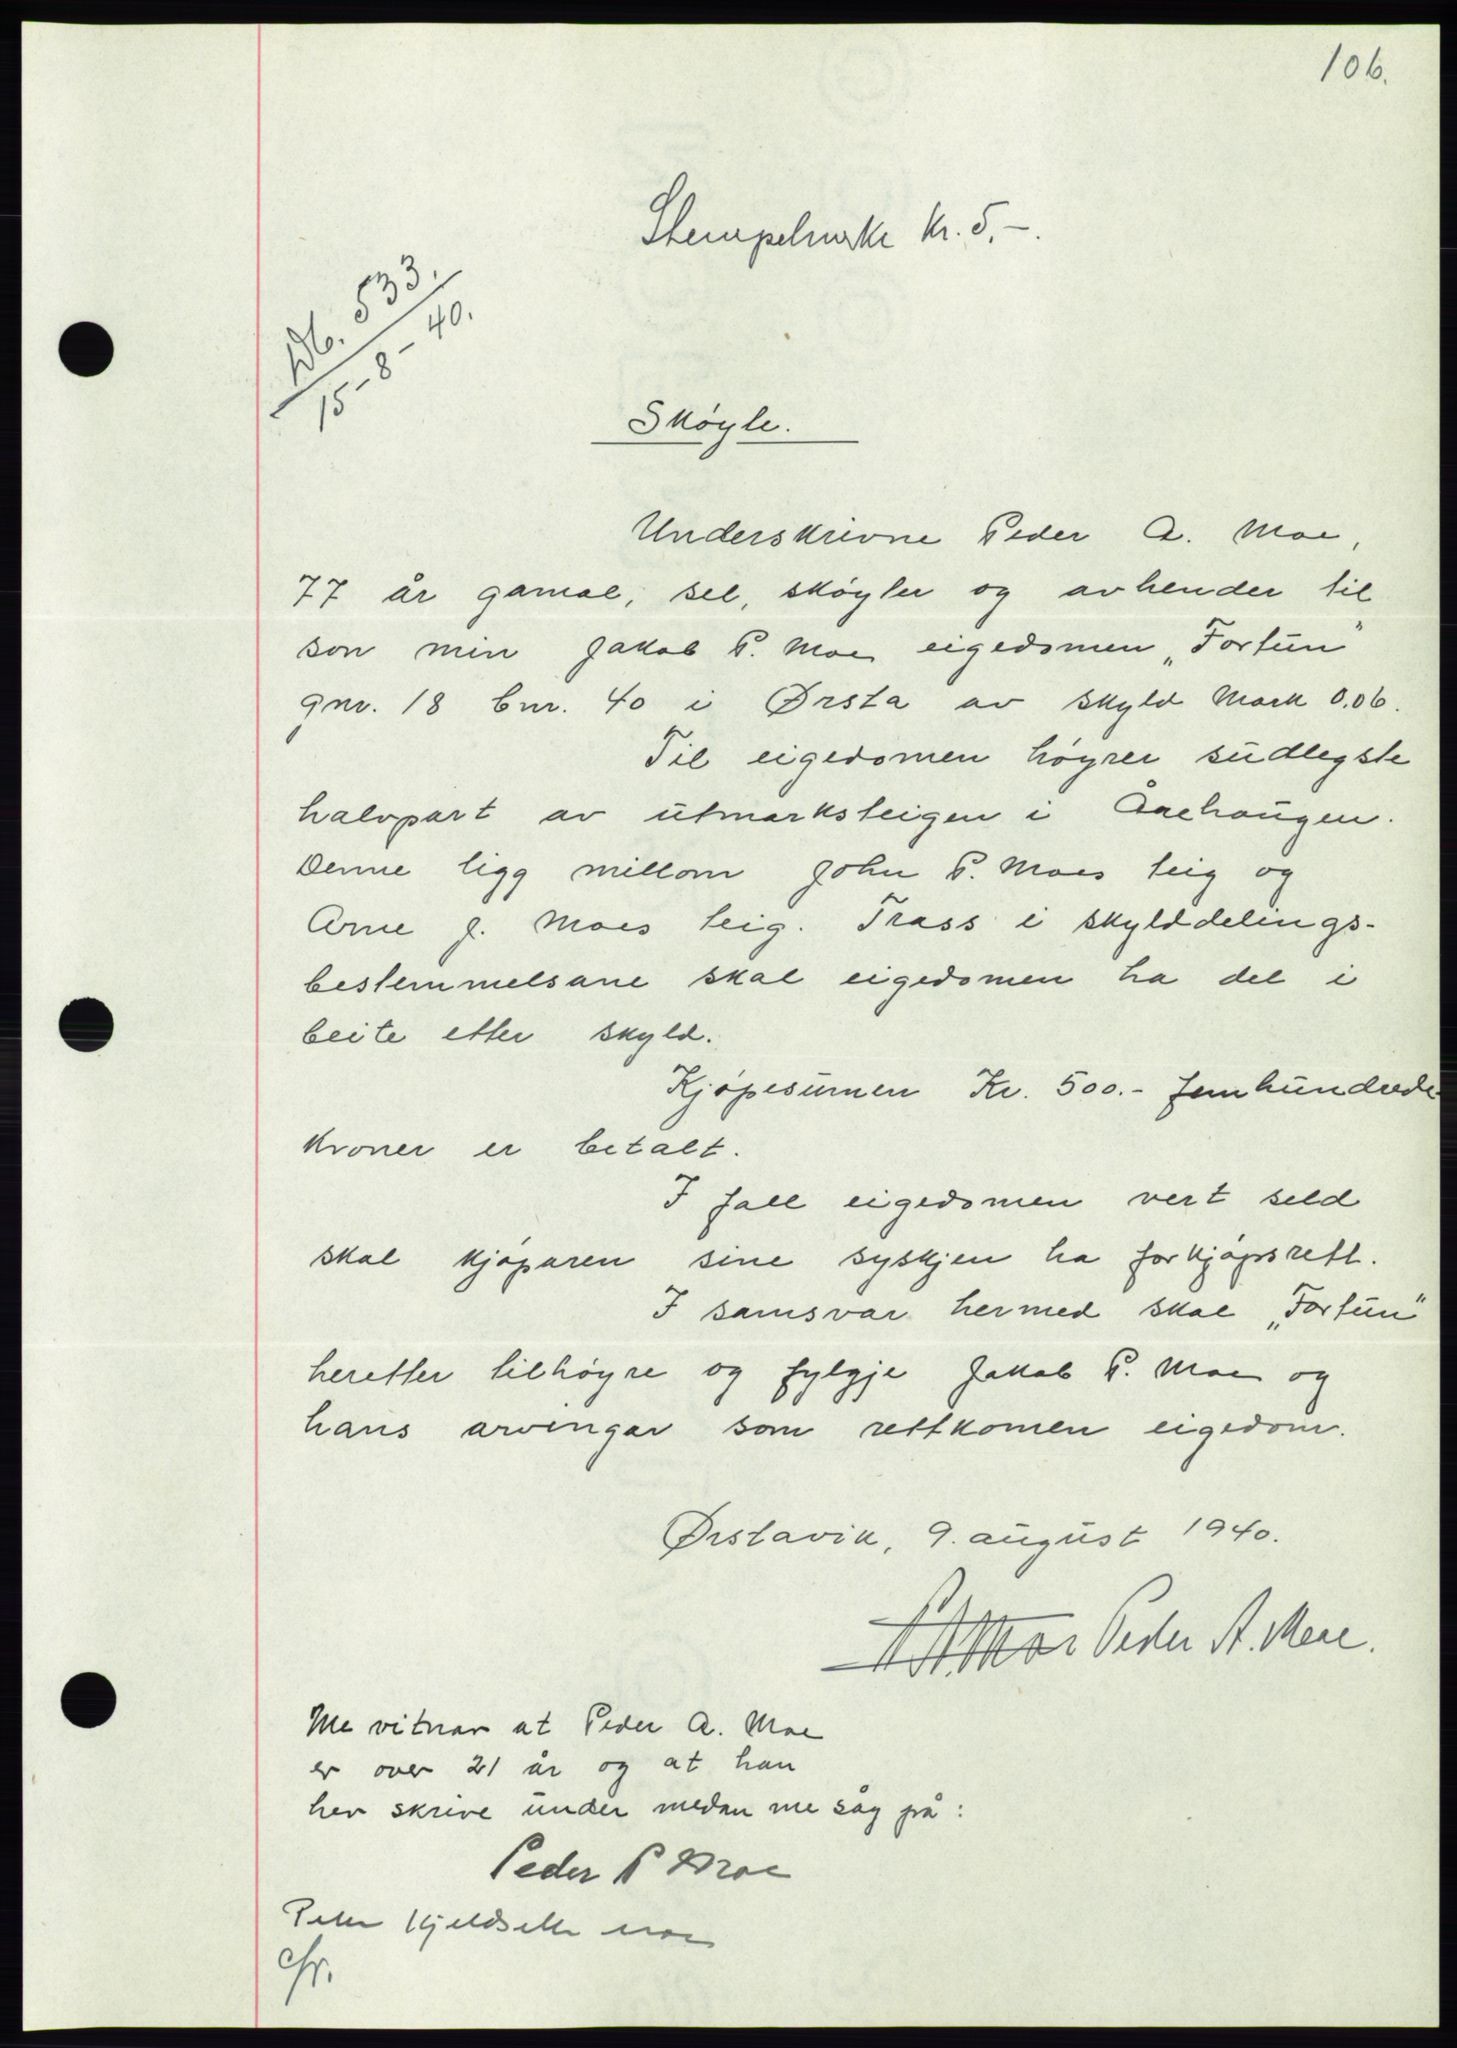 106.
Stempelmerke kr. 5,-.
Db. 533.
15-8-40.
Skøyle.
Underskrivne Peder A. Moe,
77 år gamal, sel, skøyler og avhender til
son min Jakob P. Moe eigedomen „Fortun"
gnr. 18 bnr. 40 i Ørsta av skyld Mark 0.06.
Til eigedomen høyrer sudlegste
halvpart av utmarksteigen i Åaehaugen.
Denne ligg millom John P. Moes teig og
Arne J. Moes teig. Trass i skylddelings-
bestemmelsane skal eigedomen ha del i
beite etter skyld.
Kjøpesumen Kr. 500.- femhundrede
kroner er betalt.
I fall eigedomen vert seld
skal kjøparen sine syskjen ha forkjøpsrett.
I samsvar hermed skal „Fortun"
heretter tilhøyre og fylgje Jakob P. Moe og
hans arvingar som rettkomen eigedom.
Ørstavik, 9. august 1940.
Peder A. Moe.
Me vitnar at Peder A. Moe
er over 21 år og at han
hev skrive under medan me såg på:
Peder P Moe
Peter Kjeldseth Moe